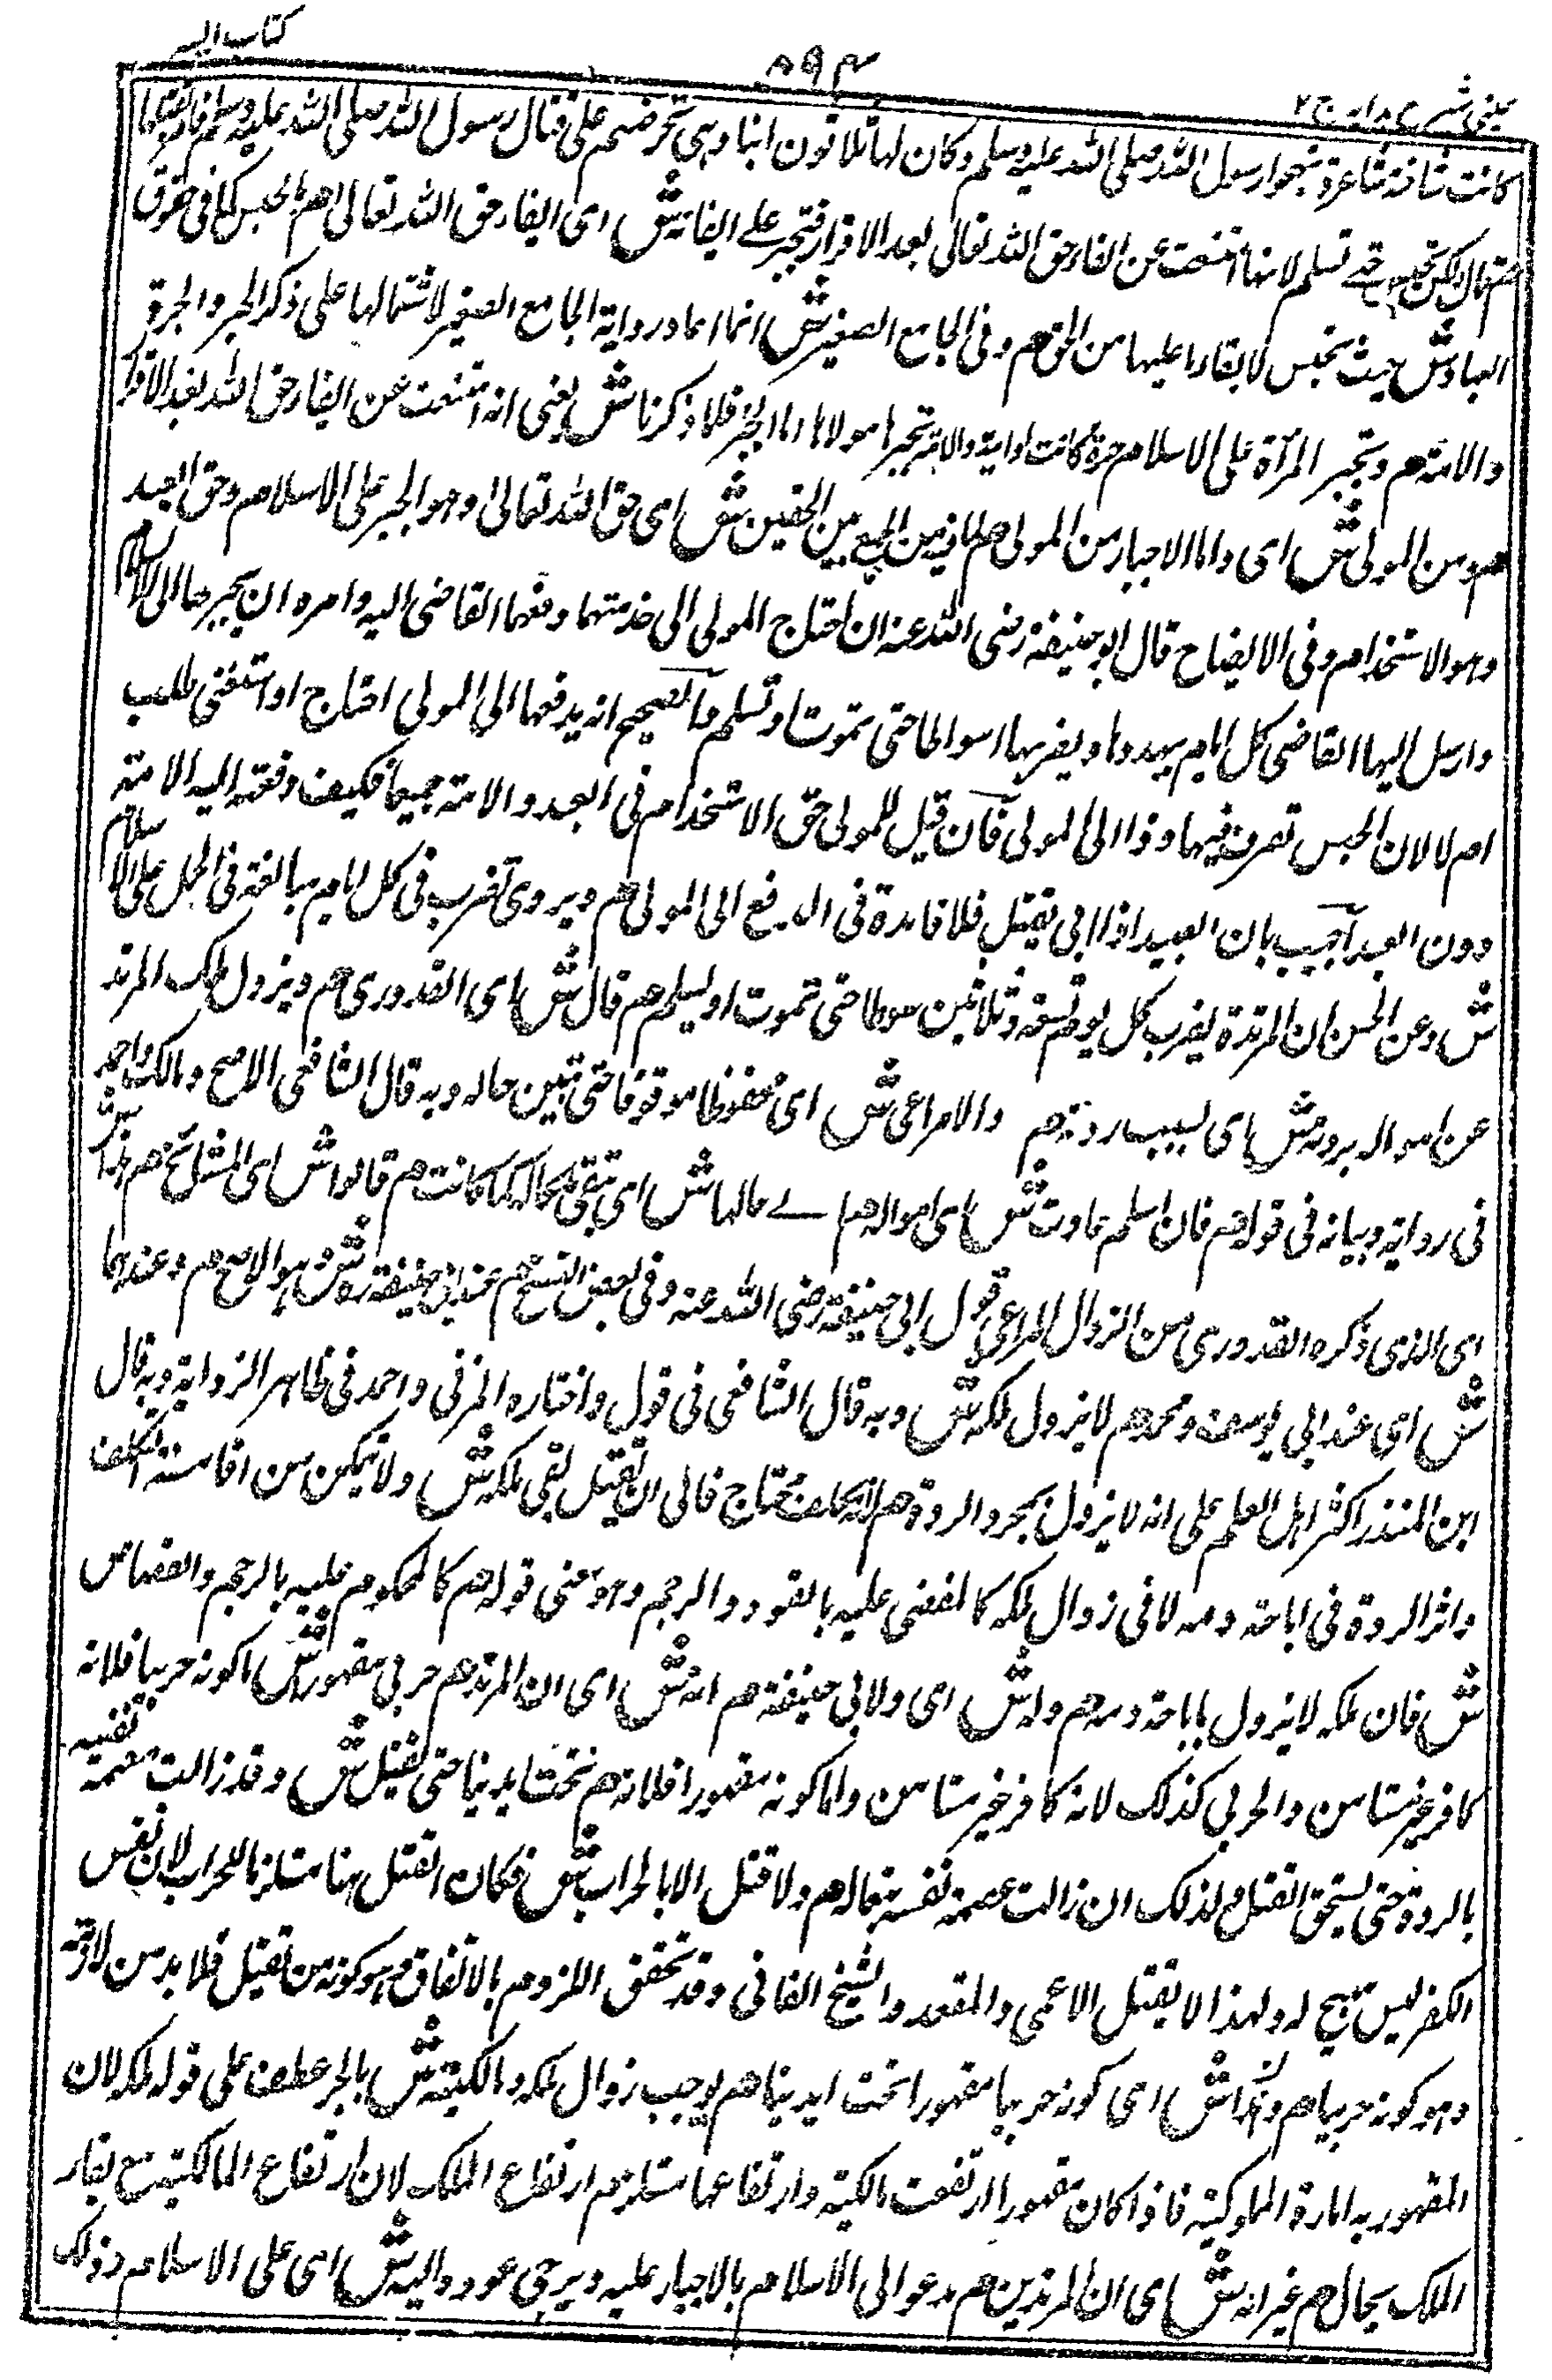 كتاب السير
٨٩٣
عيني شرح هدايه ج ٢
كانت شاعرة تهجو رسول الله صلى الله عليه وسلم وكان لها ثلاثون ابنا وهي تحرضهم على قتال رسول الله صلى الله عليه وسلم فامر بقتلها
هم قال ولكن تحبس حتى تسلم لانها امتنعت عن ايفاء حق الله تعالى بعد الاقرار فتجبر على ايفائه ش اى ايفاء حق الله تعالى هم بالحبس كما فى حقوق
العباد ش حيث تحبس لايفاء ما عليها من الحق هم وفى الجامع الصغير ش انما اعاد رواية الجامع الصغير لاشتمالها على ذكر الجبر والحرة
والامة هم وتجبر المرأة على الاسلام حرة كانت او امة والامة تجبرها مولاها اما الجبر فلما ذكرنا ش يعنى انه امتنعت عن ايفاء حق الله بعد الاقرار
هم ومن المولى ش اى واما الاجبار من المولى هم لما فيه من الجمع بين الحقين ش اى حق الله تعالى وهو الجبر على الاسلام وحق العبد
وهو الاستخدام وفى الايضاح قال ابو حنيفة رضى الله عنه ان احتاج المولى الى خدمتها دفعها القاضى اليه وامره ان يجبرها الى الاسلام
وارسل اليها القاضى كل ايام يهددها ويضربها اسواطا حتى تموت او تسلم والصحيح انه يدفعها الى المولى احتاج او استغنى طلب
ام لا لان الحبس تصرف فيها وذا الى المولى فان قيل للمولى حق الاستخدام فى العبد والامة جميعا فكيف دفعته اليه الامة
دون العبد اجيب بان العبد اذا ابى يقتل فلا فائدة فى الدفع الى المولى هم ويروى تضرب فى كل ايام مبالغة فى الحمل على الاسلام
ش وعن الحسن ان المرتدة يضرب كل يوم تسعة وثلاثين سوطا حتى تموت او تسلم هم قال ش اى القدورى هم ويزول ملك المرتد
عن امواله بردته ش اى بسبب ردته هم والامراعى ش اى محفوظا موقوفا حتى تبين حاله وبه قال الشافعى الاصح ومالك واحمد
فى رواية وبيانه فى قوله هم فان اسلم عادت ش اى امواله هم على حالها ش اى تبقى بحالها كما كانت هم قالوا ش اى المشائخ هم هذا ش
اى الذى ذكره القدورى من الزوال المراعى قول ابى حنيفة رضى الله عنه وفى بعض النسخ هم عند ابى حنيفة ره ش وهو الاصح هم وعندهما
ش اى عند ابى يوسف ومحمد هم لا يزول ملكه ش وبه قال الشافعى فى قول واختاره المزنى واحمد فى ظاهر الرواية وبه قال
ابن المنذر اكثر اهل العلم على انه لا يزول بمجرد الردة هم لانه مكلف محتاج فالى ان يقتل بقى ملكه ش ولا يتمكن من اقامة التكلف
واثر الردة فى اباحة دمه لا فى زوال ملكه كالمقضى عليه بالقود والرجم وهو معنى قوله هم كالمحكوم عليه بالرجم والقصاص
ش فان ملكه لا يزول باباحة دمه هم وله ش اى ولابى حنيفة هم انه ش اى ان المرتد هم حربى مقهور ش اما كونه حربيا فلانه
كافر غير مستامن والحربى كذلك لانه كافر غير مستامن واما كونه مقهورا فلانه هم تحت ايدينا حتى يقتل ش وقد زالت عصمة نفسه
بالردة حتى يستحق القتل ولذلك ان زالت عصمة نفسه فماله هم ولا قتل الا بالحراب ش فكان القتل هنا مستلزما للحراب لان نفس
الكفر ليس مبيح له ولهذا لا يقتل الاعمى والمقعد والشيخ الفانى وقد تحقق اللزوم بالاتفاق وهو كونه من يقتل فلا بد من لازمه
وهو كونه حربيا هم وهذا ش اى كونه حربيا مقهورا تحت ايدينا هم يوجب زوال ملكه ومالكيته ش بالجر عطف على قوله ملكه لان
المقهورية امارة المملوكية فاذا كان مقهورا ارتفعت مالكيته وارتفاعها مستلزم ارتفاع الملك لان ارتفاع المالكية مع بقاء
الملك محال هم غير انه ش اى ان المرتدين هم مدعو الى الاسلام بالاجبار عليه ويرجى عوده اليه ش اى على الاسلام وذلك